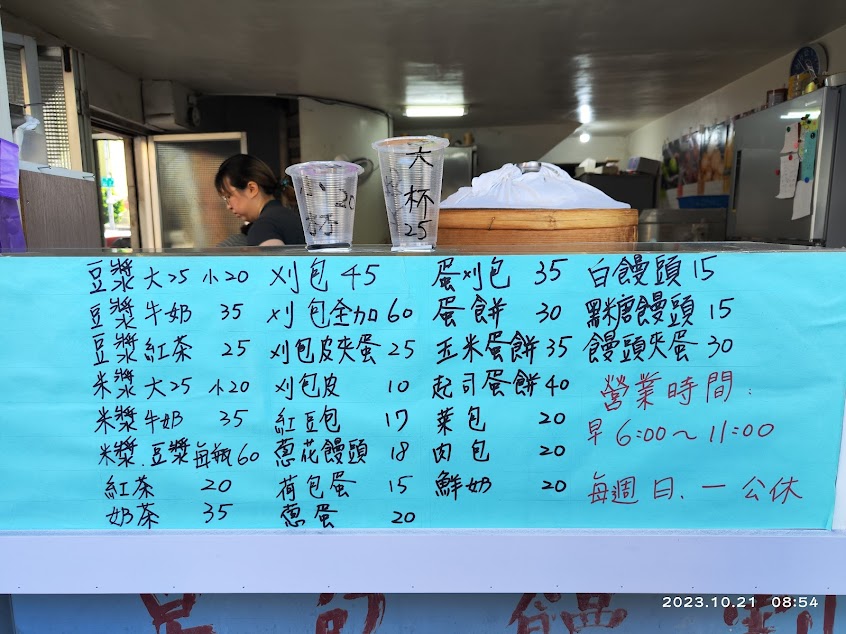 小
杯
20
大
杯
25
豆漿 大25 小20
豆漿 牛奶 35
豆漿 紅茶 25
米漿 大25 小20
米漿 牛奶 35
米漿.豆漿每瓶60
紅茶 20
奶茶 35
刈包 45
刈包全加60
刈包皮夾蛋25
刈包皮 10
紅豆包 17
蔥花饅頭 18
荷包蛋 15
蔥蛋 20
蛋刈包 35
蛋餅 30
玉米蛋餅35
起司蛋餅40
菜包 20
肉包 20
鮮奶 20
白饅頭15
黑糖饅頭 15
饅頭夾蛋30
營業時間:
早6:00~11:00
每週日、一公休
2023.10.21 08:54